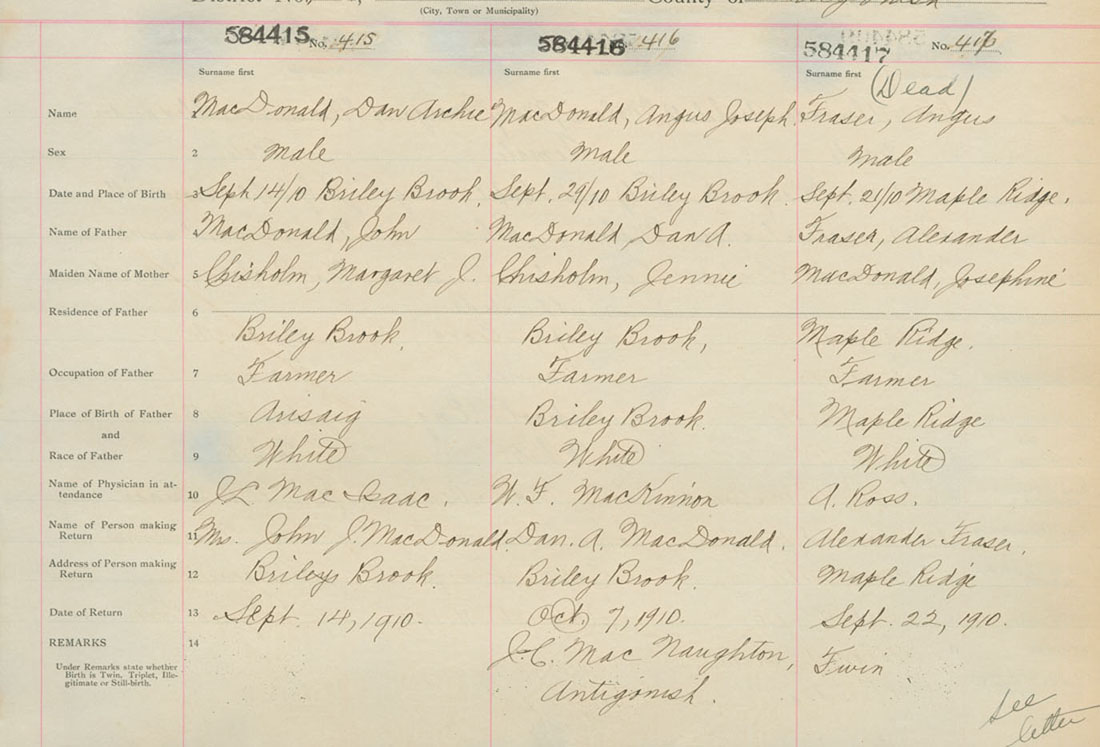 County of
(City, Town or Municipality)
584415 No. 415 584416 416 584417 No. 417
Surname first Surname first Surname first (Dead)
Name MacDonald, Dan Archie MacDonald, Angus Joseph Fraser, Angus
Sex 2 Male Male Male
Date and Place of Birth 3 Sept 14/10 Briley Brook. Sept. 29/10 Briley Brook. Sept. 21/10 Maple Ridge.
Name of Father MacDonald, John MacDonald Dan A. Fraser, Alexander
Maiden Name of Mother 5 Chisholm, Margaret J. Chisholm, Jennie MacDonald, Josephine
Residence of Father 6
Briley Brook. Briley Brook, Maple Ridge.
Occupation of Father 7 Farmer Farmer Farmer
Place of Birth of Father 8 Arisaig Briley Brook. Maple Ridge
and
Race of Father 9 White White White
Name of Physician in at-
tendance 10 MacIsaac. W. F. MacKinnon A. Ross.
Name of Person making
Return 11 Mrs. John J. MacDonald. Dan. A. MacDonald. Alexander Fraser.
Address of Person making
Return 12 Brileys Brook. Briley Brook. Maple Ridge
Date of Return 13 Sept. 14, 1910. Oct. 7, 1910. Sept. 22, 1910.
REMARKS 14 J. C. MacNaughton, Twin
Under Remarks state whether
Birth is Twin, Triplet, Ille-
gitimate or Still-birth.
Antigonish.
see
letter